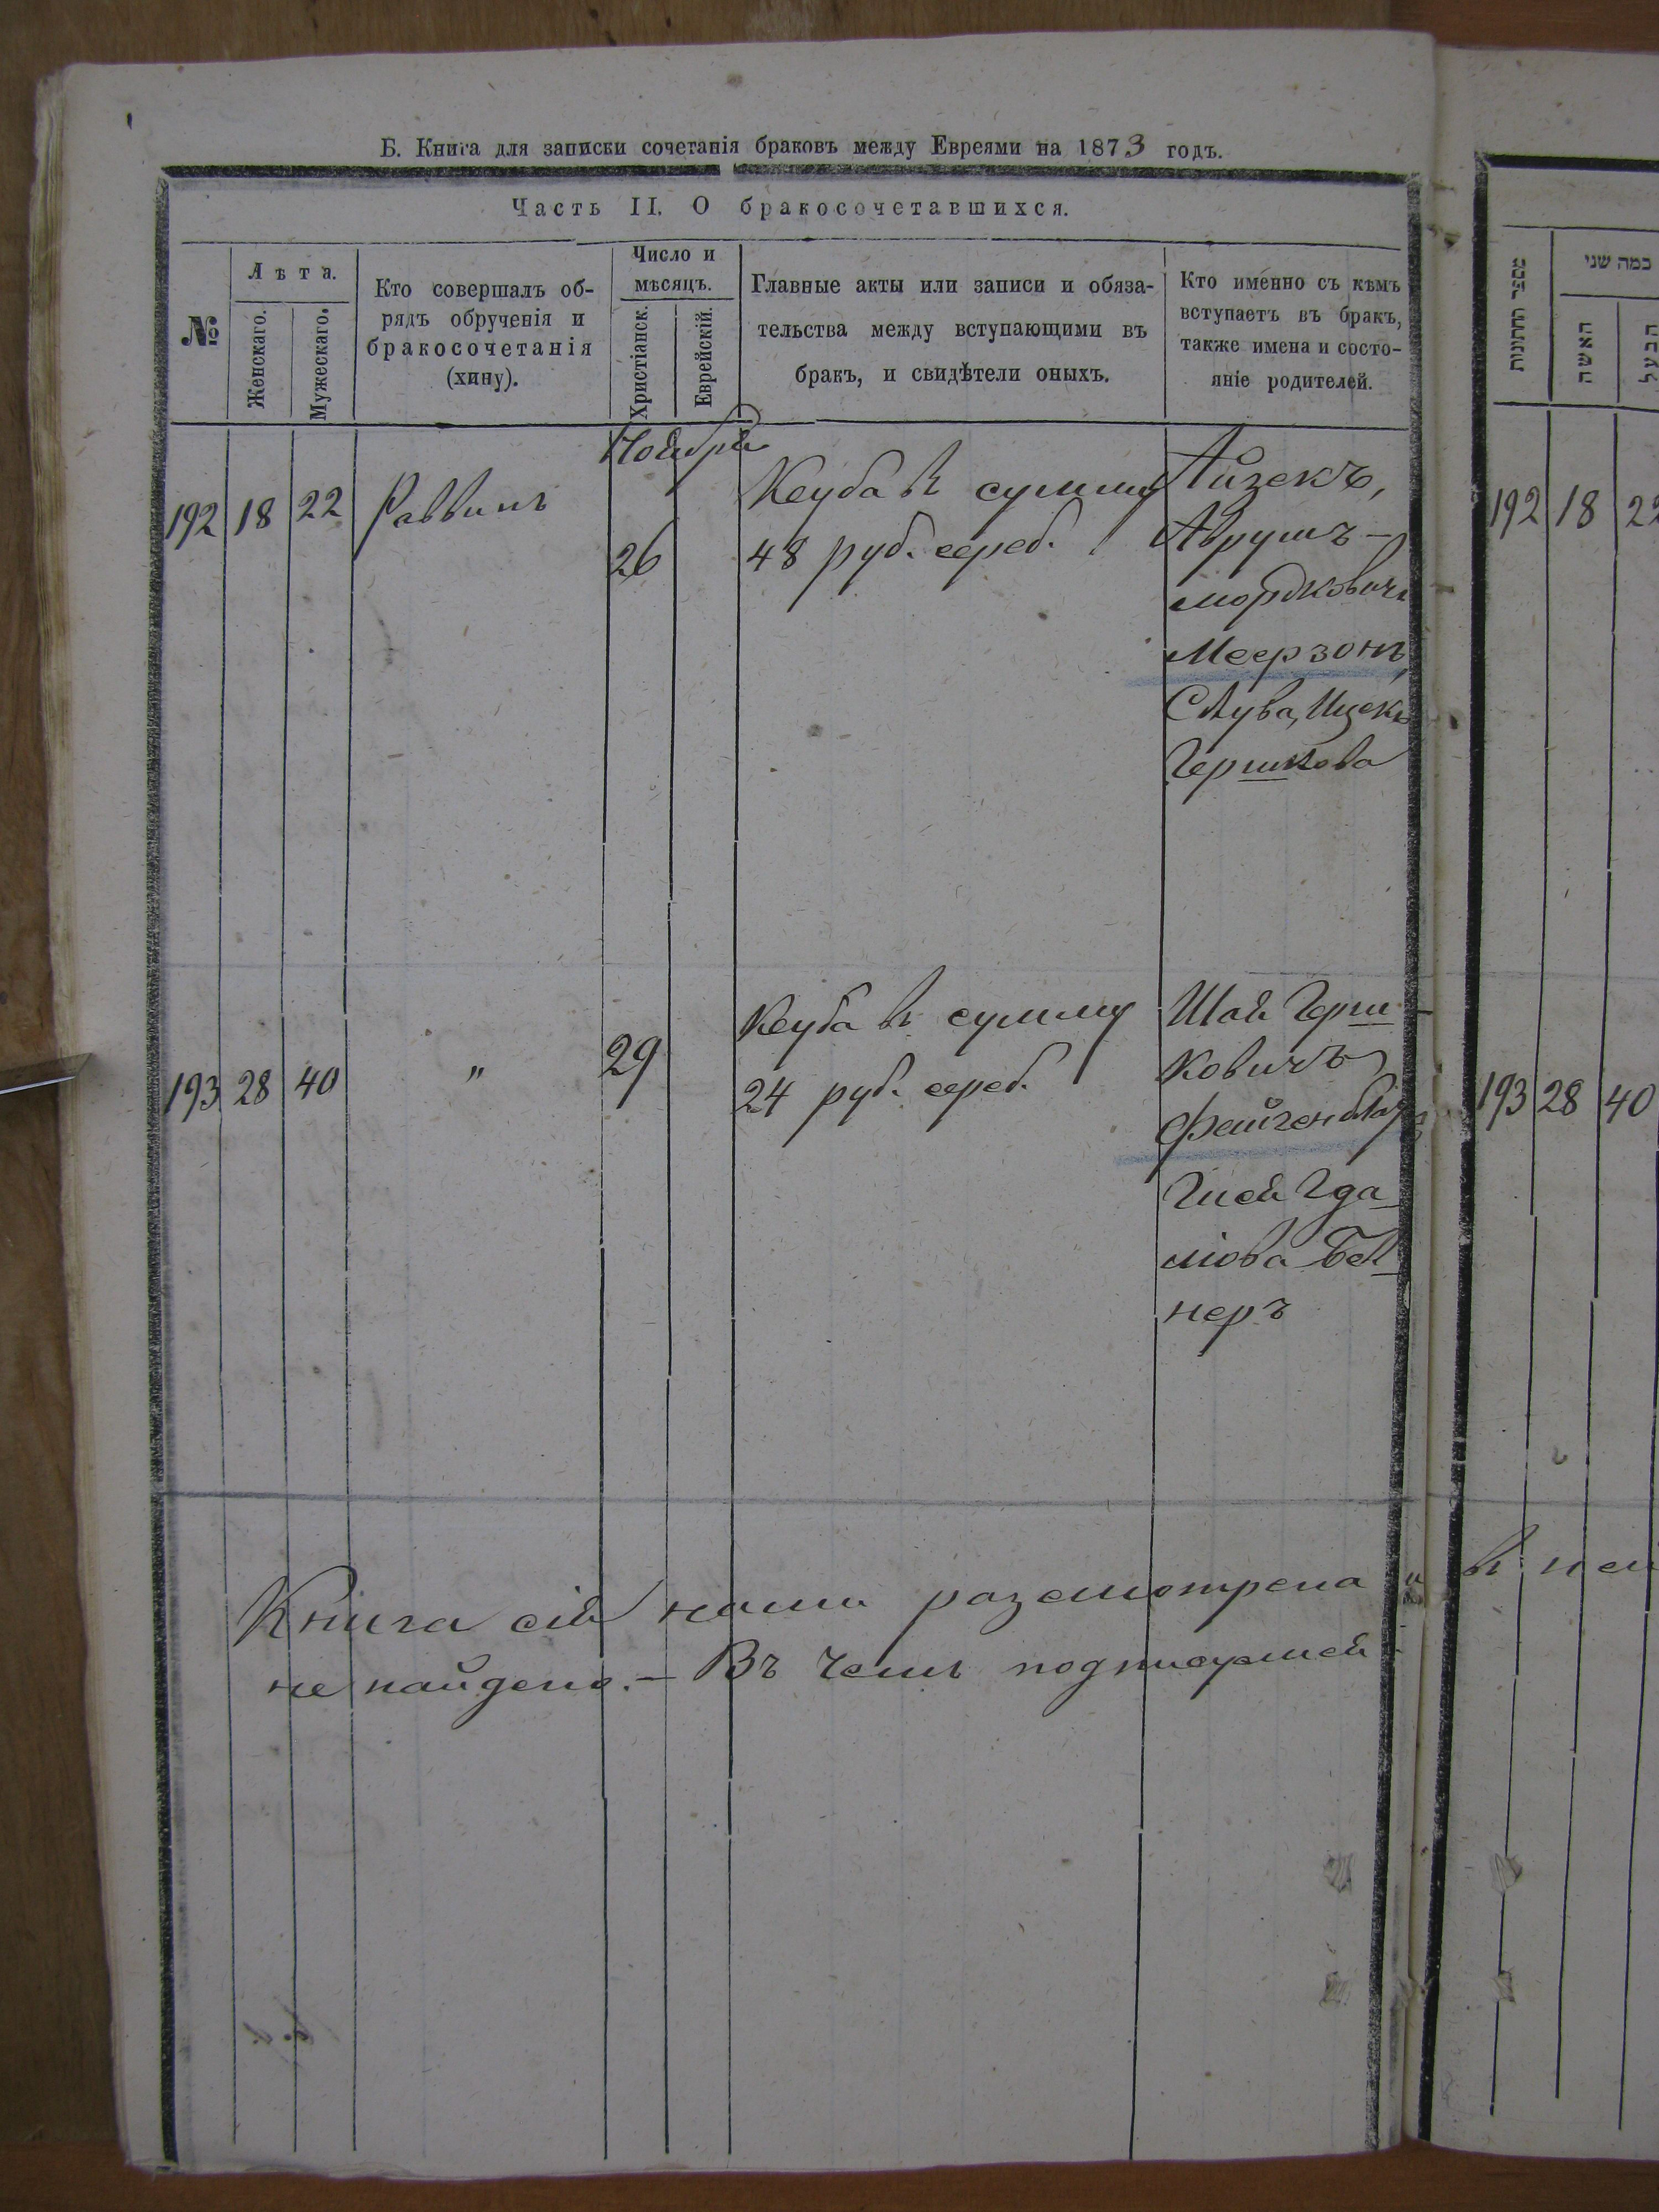 Б. Книга для записки сочетанія браковъ между Евреями на 1873 годъ.
Часть II. О бракосочетавшихся.
№
Лѣта.
Женскаго.
Мужескаго.
Кто совершалъ об-
рядъ обрученія и
бракосочетанія
(хипу).
Число и
мѣсяцъ.
Христіанск.
Еврейскій.
Главные акты или записи и обяза-
тельства между вступающими въ
бракъ, и свидѣтели оныхъ.
Кто именно съ кѣмъ
вступаетъ въ бракъ,
также имена и состо-
яніе родителей.
Ноября
192 18 22 Раввинъ
26
Кеуба въ сумму
48 руб. сереб.
Айзекъ,
Аврумъ-
Мордковичъ
Меерзонъ,
Слува, Ицек
Гершкова
193 28 40 " 29
Кеуба въ сумму
24 руб. сереб.
Шая Герш-
ковичъ
Фейгенблатъ
Геда-
ліова Бел-
неръ
Книга сія нами разсмотрена и въ ней
не найдено. — Въ чемъ подписуемся
מספר החתונות
כמה שני
האשה
הבעל
192 18 22
193 28 40